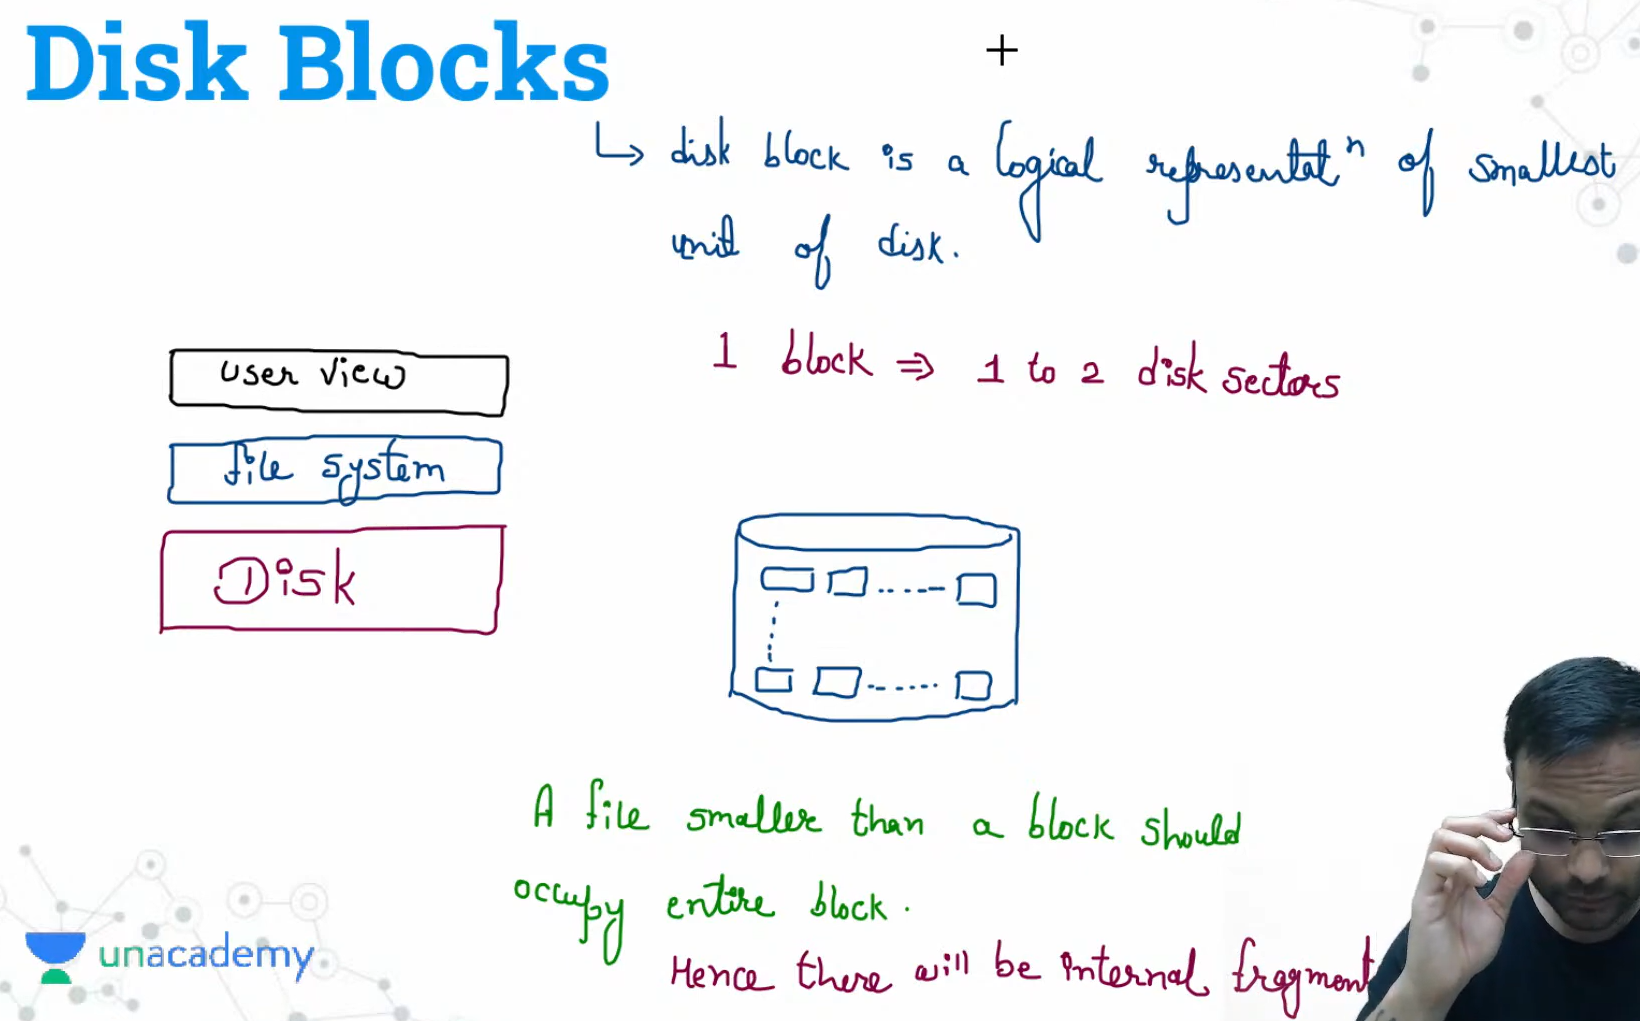 Disk Blocks
↳ disk block is a logical representatⁿ of smallest
unit of disk.
1 block ⇒ 1 to 2 disk sectors
user view
file system
Disk
A file smaller than a block should
occupy entire block.
Hence there will be internal fragment
unacademy